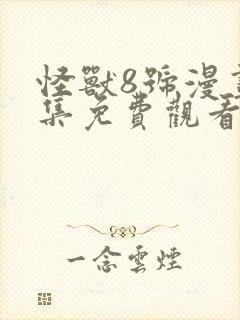 怪獸8號漫
集免費觀看
一念雲煙